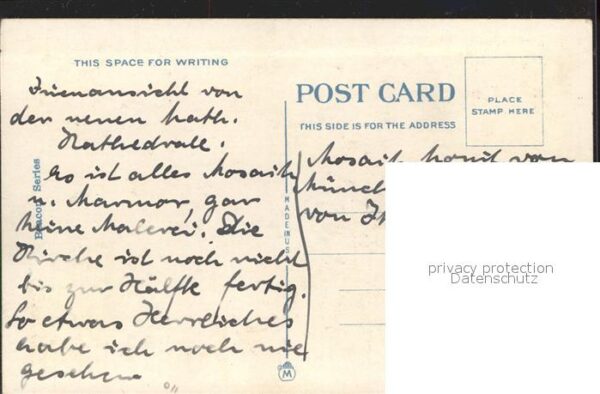 THIS SPACE FOR WRITING
Innenansicht von
der neuen kath.
Kathedrale.
Es ist alles Mosaik
u. Marmor, gar
keine Malerei. Die
Kirche ist noch nicht
bis zur Hälfte fertig.
So etwas Herrliches
habe ich noch nie
gesehen
Beacon Series
MADE IN US
M
POST CARD
THIS SIDE IS FOR THE ADDRESS
PLACE
STAMP HERE
Mosaik kommt von
von
privacy protection
Datenschutz